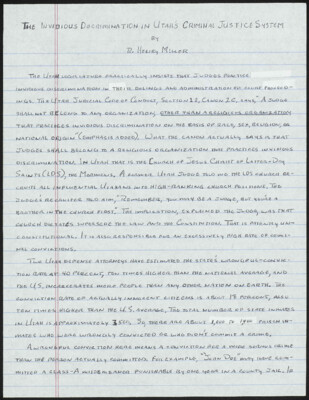 THE INVIDIOUS DISCRIMINATION IN UTAH'S CRIMINAL JUSTICE SYSTEM
BY
D. HENRY MILLER
THE UTAH LEGISLATURE PRACTICALLY INSISTS THAT JUDGES PRACTICE
INVIDIOUS DISCRIMINATION IN THEIR RULINGS AND ADMINISTRATION OF COURT PROCEED-
INGS. THE UTAH JUDICIAL CODE OF CONDUCT, SECTION 2E, CANON 2C, SAYS, "A JUDGE
SHALL NOT BELONG TO ANY ORGANIZATION, OTHER THAN A RELIGIOUS ORGANIZATION
THAT PRACTICES INVIDIOUS DISCRIMINATION ON THE BASIS OF RACE, SEX, RELIGION, OR
NATIONAL ORIGIN" (EMPHASIS ADDED). WHAT THE CANON ACTUALLY SAYS IS THAT
JUDGES SHALL BELONG TO A RELIGIOUS ORGANIZATION THAT PRACTICES INVIDIOUS
DISCRIMINATION. IN UTAH THAT IS THE CHURCH OF JESUS CHRIST OF LATTER-DAY
SAINTS (LDS), THE MORMONS. A FORMER UTAH JUDGE TOLD ME THE LDS CHURCH RE-
CRUITS ALL INFLUENTIAL UTAHANS INTO HIGH-RANKING CHURCH POSITIONS. THE
JUDGES RECRUITER TOLD HIM, "REMEMBER, YOU MAY BE A JUDGE, BUT YOU'RE A
BROTHER IN THE CHURCH FIRST." THE IMPLICATION, EXPLAINED THE JUDGE, WAS THAT
CHURCH DICTATES SUPERSEDE THE LAW AND THE CONSTITUTION. THAT IS PATENTLY UN-
CONSTITUTIONAL. IT IS ALSO RESPONSIBLE FOR AN EXCESSIVELY HIGH RATE OF WRONG-
FUL CONVICTIONS.
TWO UTAH DEFENSE ATTORNEYS HAVE ESTIMATED THE STATE'S WRONGFUL-CONVIC-
TION RATE AT 40 PERCENT, TEN TIMES HIGHER THAN THE NATIONAL AVERAGE, AND
THE U.S. INCARCERATES MORE PEOPLE THAN ANY OTHER NATION ON EARTH. THE
CONVICTION RATE OF ACTUALLY INNOCENT CITIZENS IS ABOUT 18 PERCENT,
TEN TIMES HIGHER THAN THE U.S. AVERAGE. THE TOTAL NUMBER OF STATE INMATES
IN UTAH IS APPROXIMATELY SO THERE ARE ABOUT PRISON IN-
MATES WHO WERE WRONGFULLY CONVICTED OR WHO DIDN'T COMMIT A CRIME.
A WRONGFUL CONVICTION HERE MEANS A CONVICTION FOR A MORE SERIOUS CRIME
THAN THE PERSON ACTUALLY COMMITTED. FOR EXAMPLE, "JOHN DOE" MAY HAVE COM-
MITTED A CLASS-A MISDEMEANOR PUNISHABLE BY ONE YEAR IN A COUNTY JAIL, IN